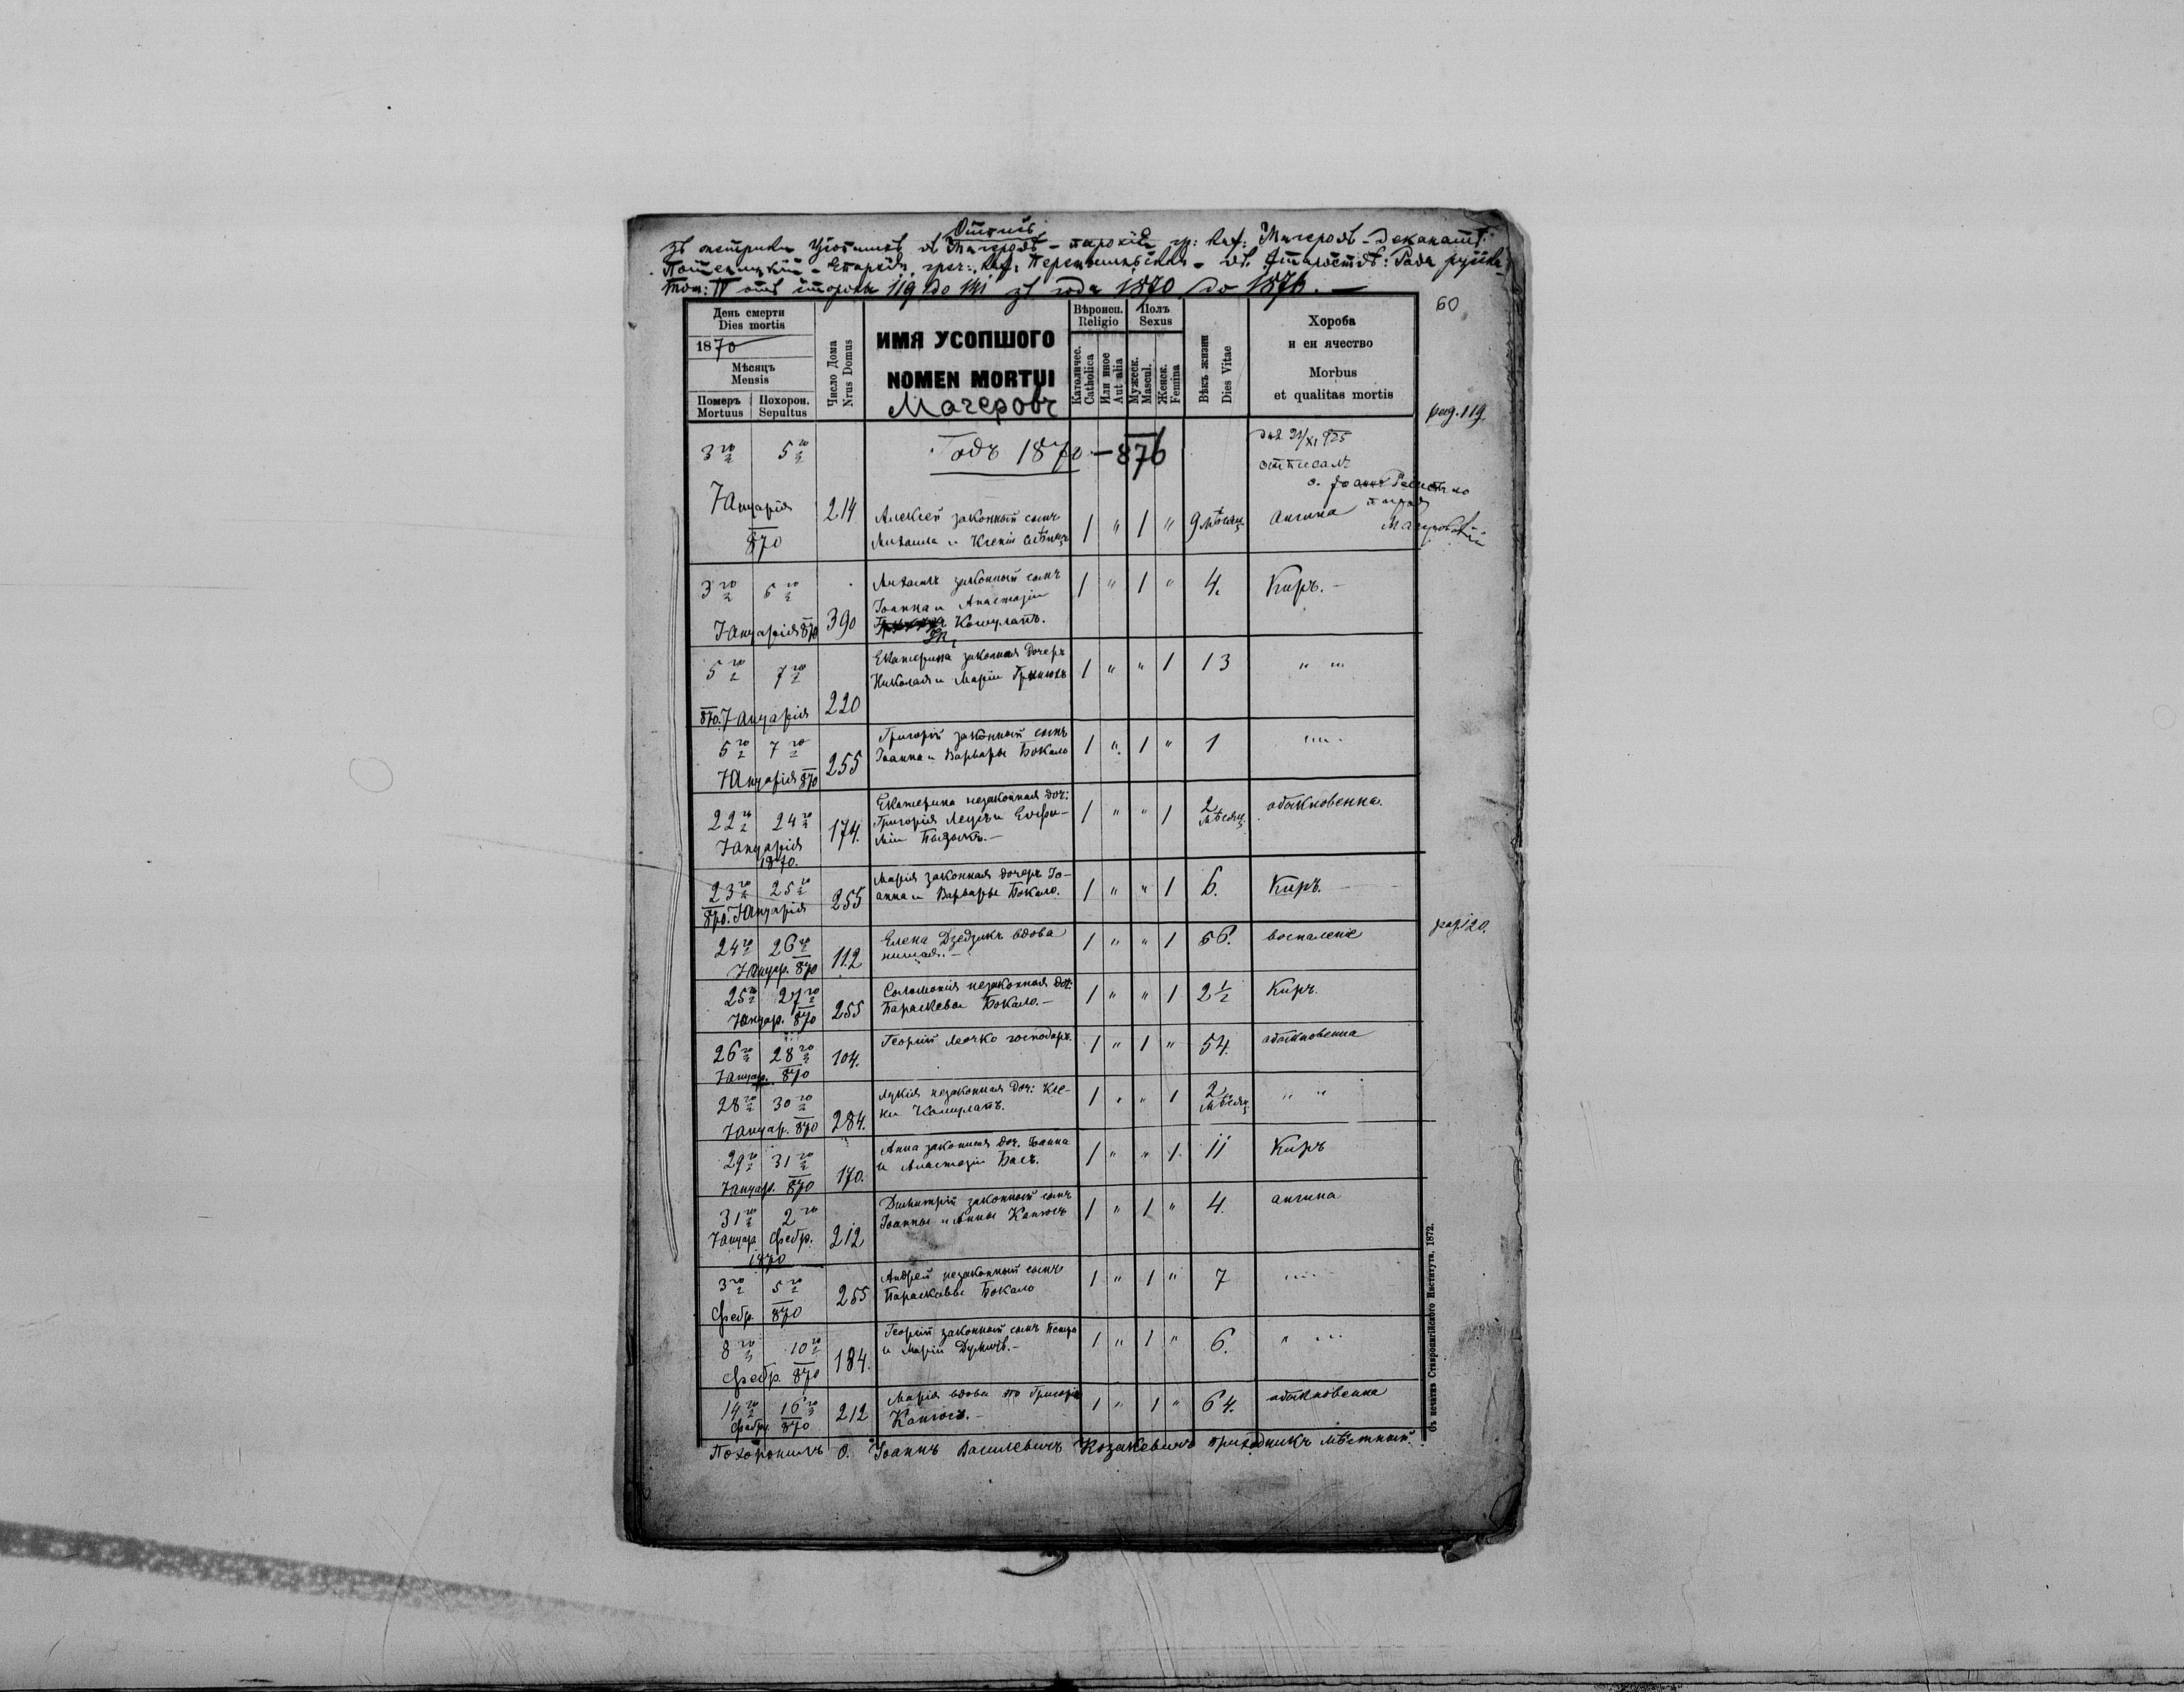 Отпись
зъ метрики Усопшихъ въ Магеровѣ - парохіи гр: каѳ: Магеровъ - деканатъ:
Потелицкій - Епархія, греч:, каѳ: Перемышльская - въ Староствѣ: Рава руска
том: IV отъ стороны 119 до 141 зъ года 1870 до 1876. —
60
День смерти
Dies mortis
1870
Мѣсяцъ
Mensis
Померъ
Mortuus
Похорон.
Sepultus
Число Дома
Nrus Domus
ИМЯ УСОПШОГО
NOMEN MORTUI
Магеровъ
Вѣроисп.
Religio
Католичес.
Catholica
Или иное
Aut alia
Полъ
Sexus
Мужеск.
Mascul.
Женск.
Femina
Вѣкъ жизни
Dies Vitae
Хороба
и еи ячество
Morbus
et qualitas mortis
pag. 119.
Годъ 1870 - 876
дня 21/XI 925
отписалъ
о. Іоаннъ
парох
Магеровскій
3го 5го
Януарія
870
214
Алексей законный сынъ
Михаила и Ксеніи
1 " 1 " 9 мѣсяц. ангина
3го 6го
Януарія 870
390
Михаилъ законный сынъ
Іоанна и Анастазіи
Кошулапъ.
1 " 1 " 4. Киръ. -
5го 7го
870. Януарія
220
Екатерина законная дочерь
Николая и Маріи Грынюхъ
1 " " 1 13 " "
5го 7го
Януарія 870
255
Григорій законный сынъ
Іоанна и Варвары Бокало
1 " 1 " 1 " "
22го 24го
Януарія
1870.
174.
Екатерина незаконная доч:
Григорія Лецеъ и Евфи-
міи
1 " " 1 2 мѣсяц. обыкновенна.
23го 25го
870. Януарія
255
Марія законная дочерь Іо-
анна и Варвары Бокало.
1 " " 1 6. Киръ.
pag 120.
24го 26го
Януар. 870
112
Елена Дзедзикъ вдова
нищая. -
1 " " 1 56. воспаленіе
25го 27го
Януар. 870
255
Соломонія незаконная доч:
Параскевы Бокало. -
1 " " 1 2½ Киръ.
26го 28го
Януар. 870
104.
Георгій Мочко господаръ.
1 " 1 " 54. обыкновенна
28го 30го
Януар. 870
284.
Лукія незаконная доч: Ксе-
ни Кошулапъ.
1 " " 1 2 мѣсяц. " "
29го 31го
Януар. 870
170.
Анна законная доч. Іоанна
и Анастазіи Басъ.
1 " " 1 11 Киръ
31го 2го
Януар. Февр.
1870
212
Димитрій законный сынъ
Іоанны и Анны Капюсъ
1 " 1 " 4. ангина
3го 5го
Февр. 870
255
Андрей незаконный сынъ
Параскевы Бокало
1 " 1 " 7 " "
8го 10го
Февр. 870
184.
Георгій законный сынъ
и Маріи
1 " 1 " 6. " "
14го 16го
Февр. 870
212
Марія вдова по Григоріи
Капюсъ. -
1 " 1 " 64. обыкновенна
Похоронилъ О. Іоаннъ Василевичъ Козакевичъ приходникъ мѣстный.
Съ печатни Ставропигійского Института. 1872.